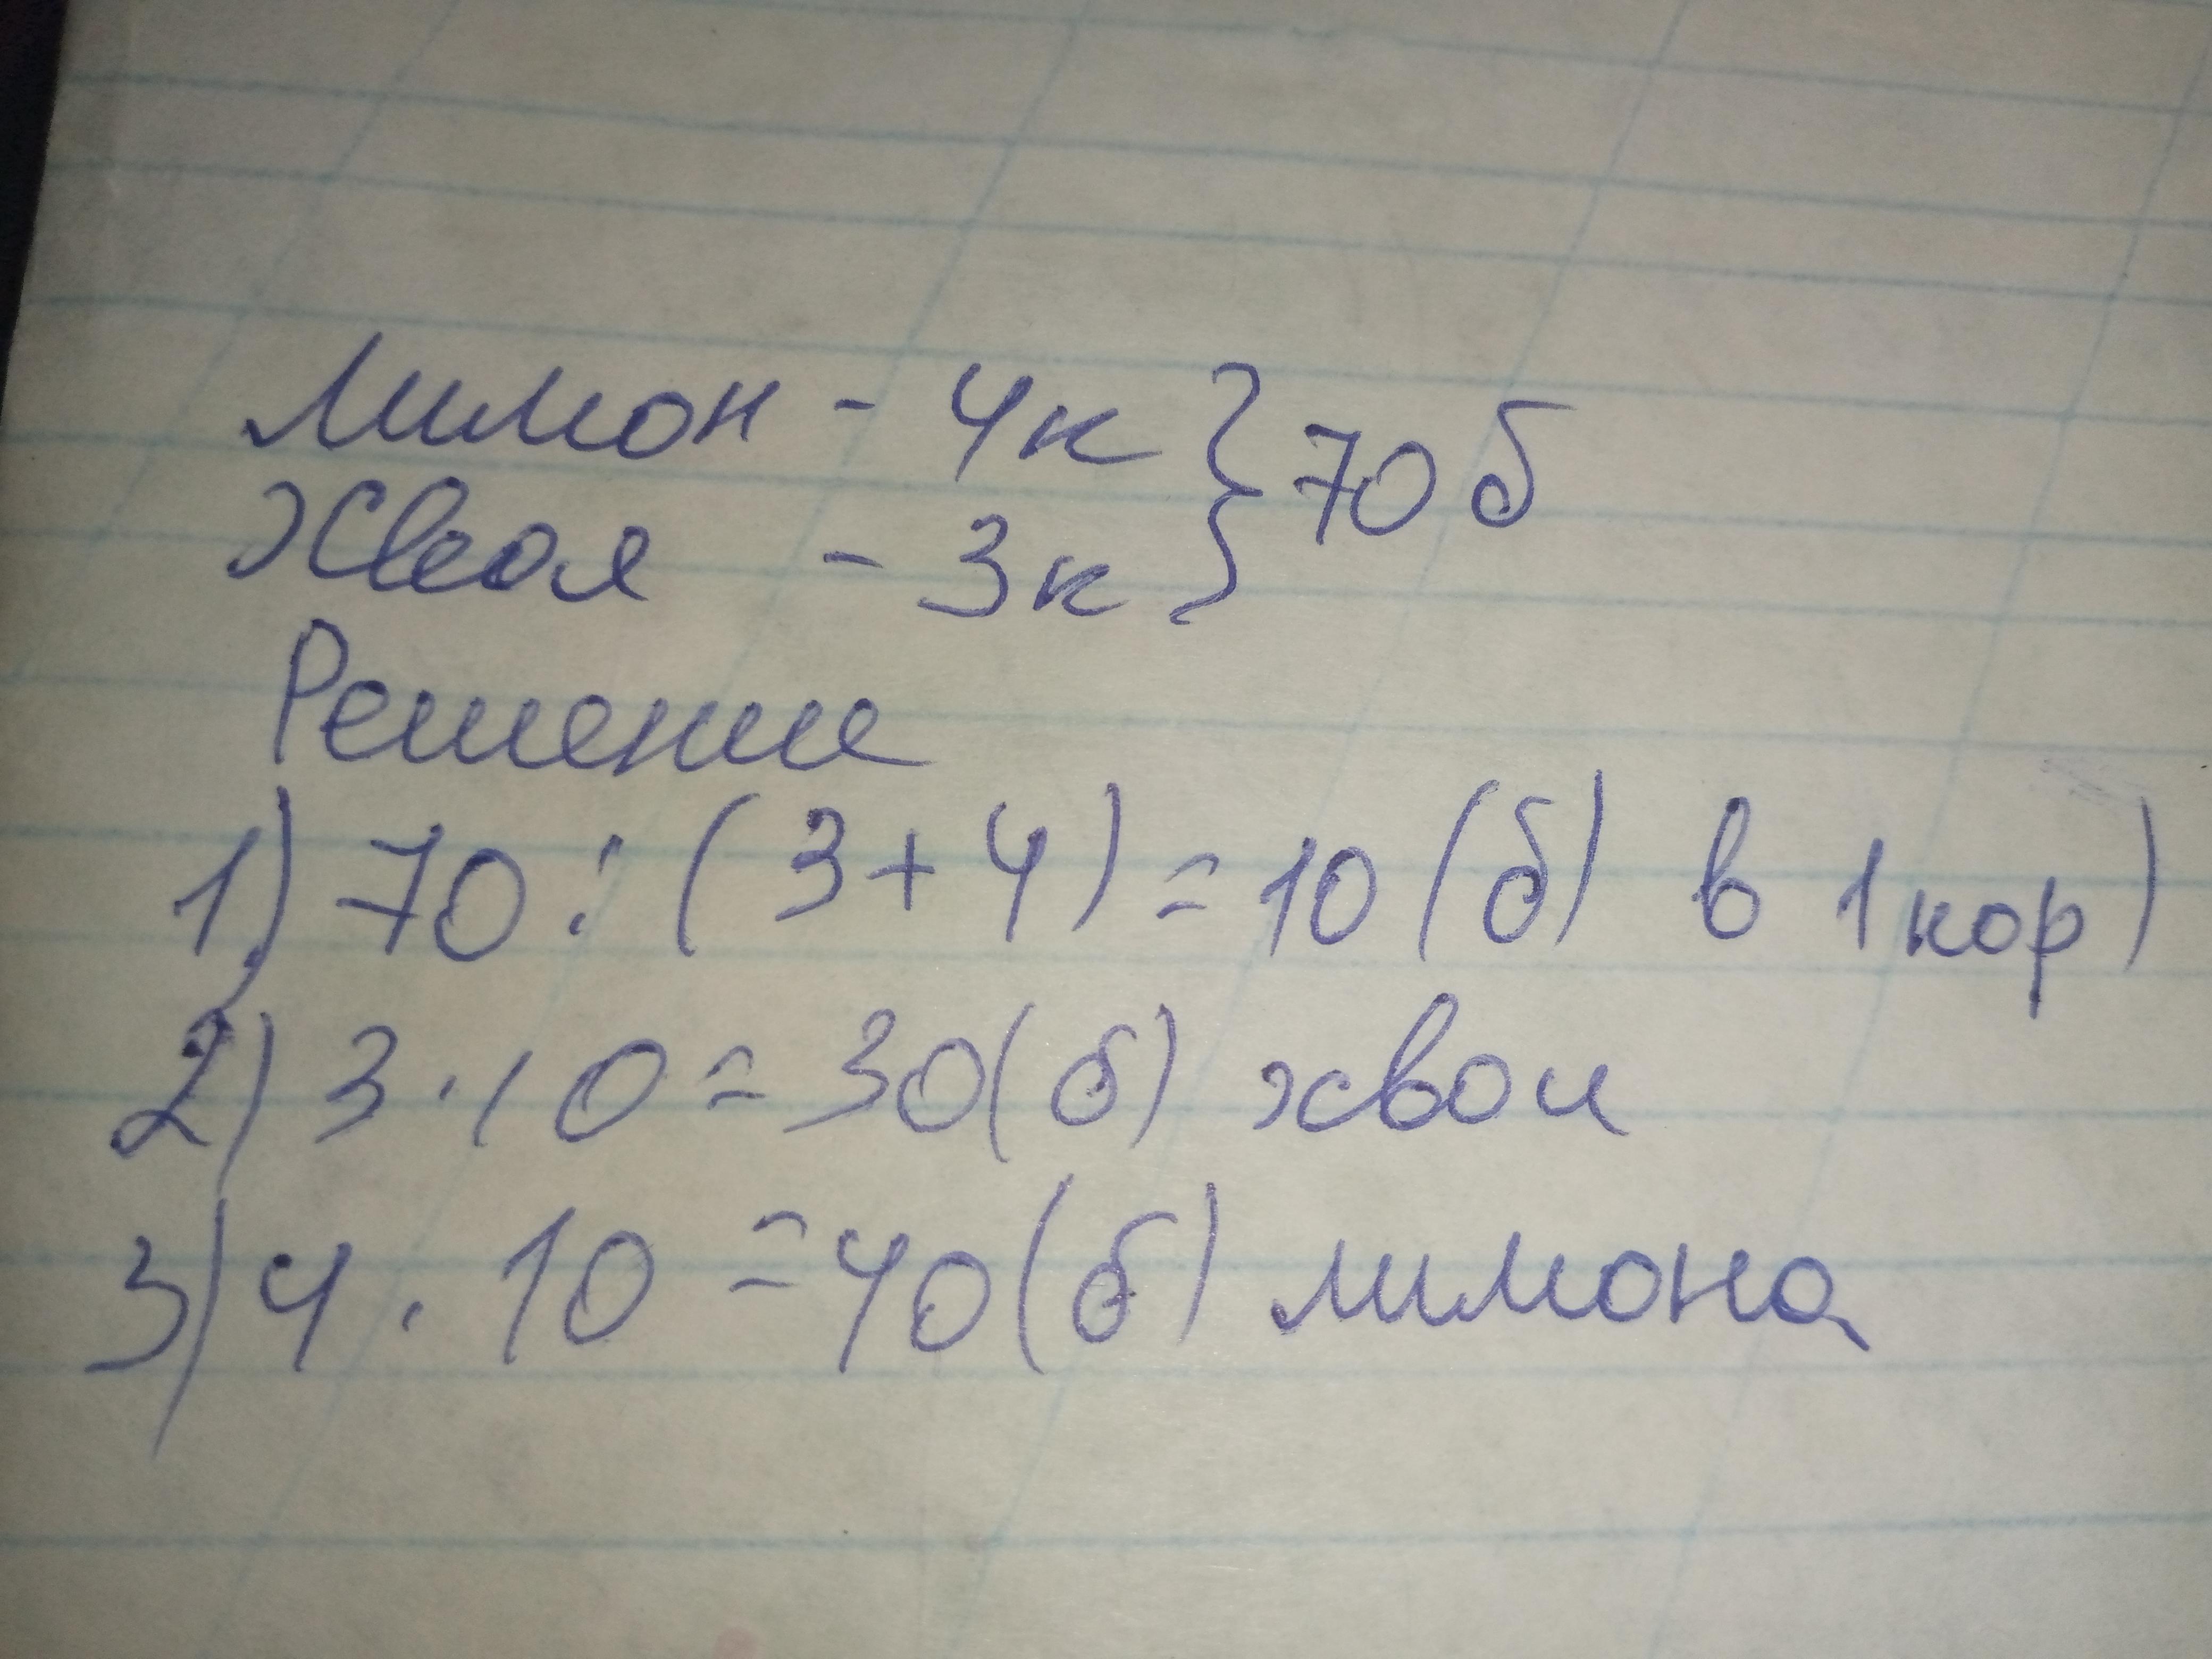 Лимон - 4к } 70 б
Хвоя - 3к
Решение
1) 70 : (3+4) = 10 (б) в 1 кор)
2) 3 · 10 = 30 (б) хвои
3) 4 · 10 = 40 (б) лимона